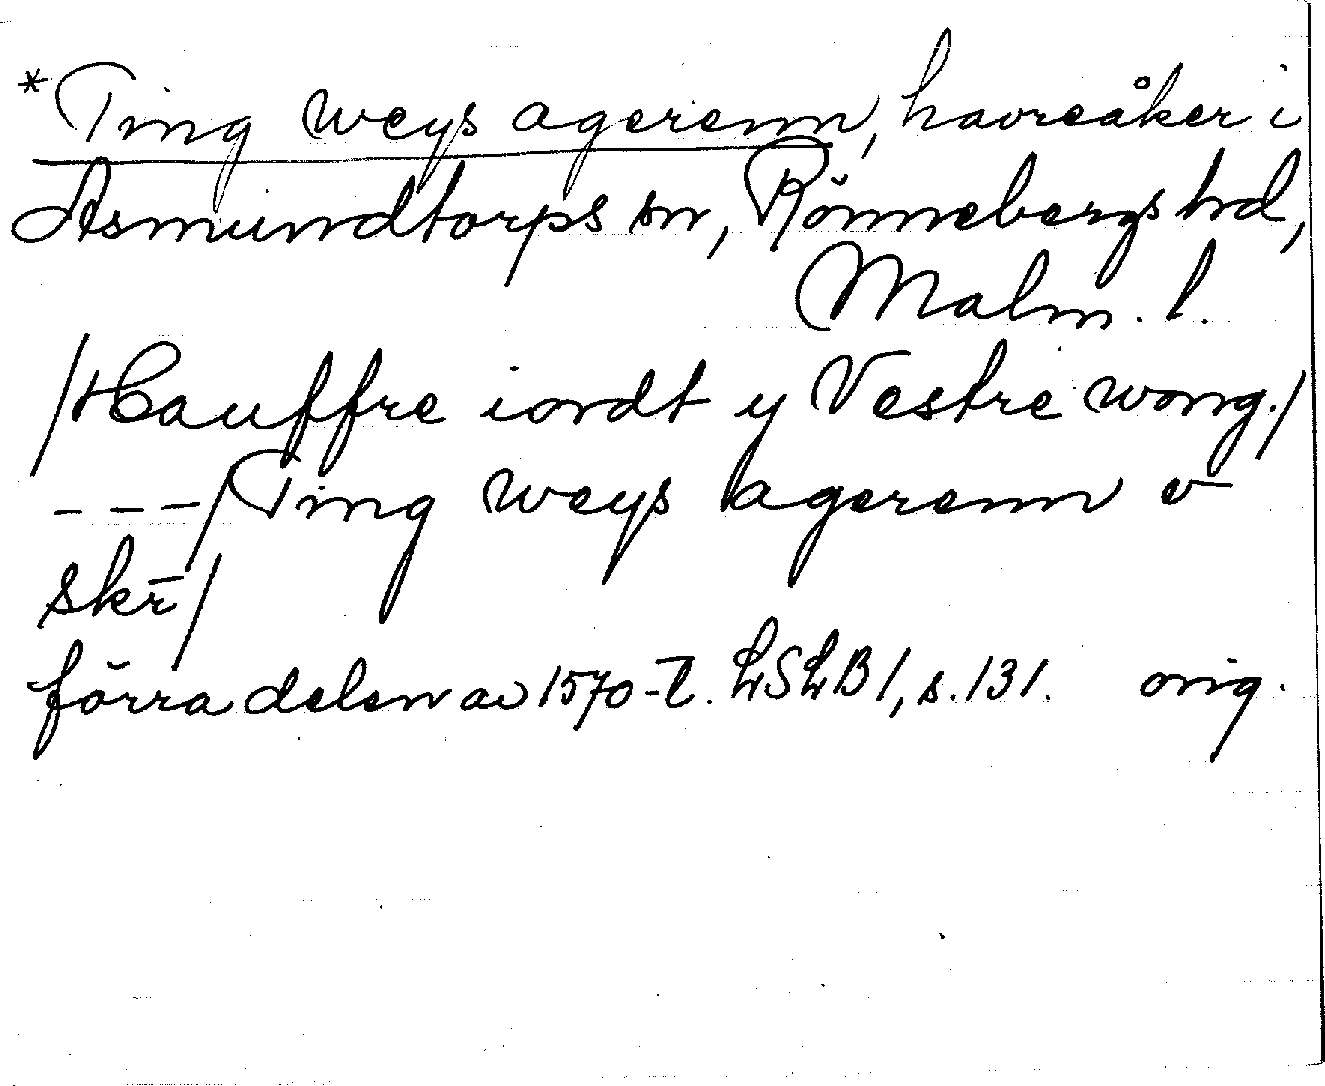 *Ting weys agerenn, havreåker i
Asmundtorps sn, Rönnebergs hd,
Malm. l.
/Hauffre iordt y Vestre wong./
---/Ting weys agerenn v
skr̄/
förra delen av 1570-t. LSLB 1, s. 131. orig.